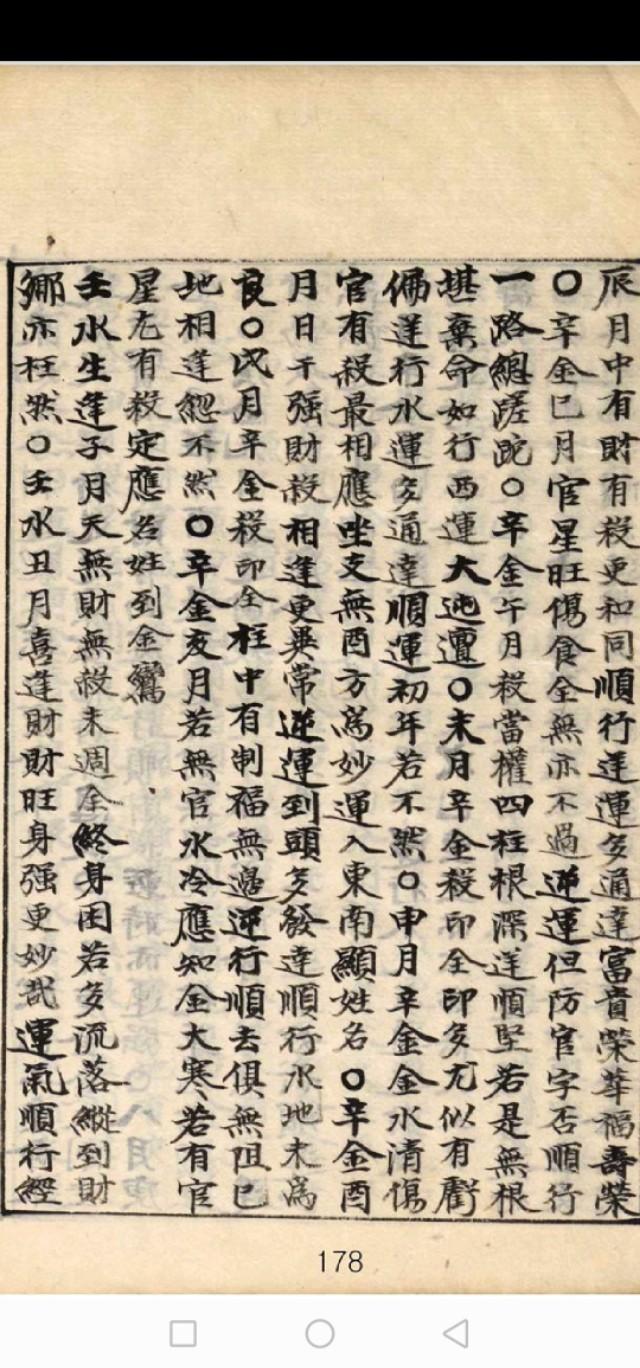 辰月中有財有殺更和同順行逆運多通達富貴榮華福壽榮
〇辛金巳月官星旺傷食全無亦不過逆運但防官字否順行
一路總蹉跎〇辛金午月殺當權四柱根深逆順堅若是無根
堪棄命如行西運大迍邅〇未月辛金殺印全印多尤似有虧
偏逆行水運多通達順運初年若不然〇申月辛金金水清傷
官有殺最相應坐支無酉方為妙運入東南顯姓名〇辛金酉
月日干強財殺相逢更異常逆運到頭多發達順行水地未為
良〇戌月辛金殺印全柱中有制福無邊逆行順去俱無阻巳
地相逢忽不然〇辛金亥月若無官水冷應知金大寒若有官
星尤有殺定應名姓到金鸞
壬水生逢子月天無財無殺未週全終身困若多流落縱到財
鄉亦枉然〇壬水丑月喜逢財財旺身强更妙哉運氣順行經
178